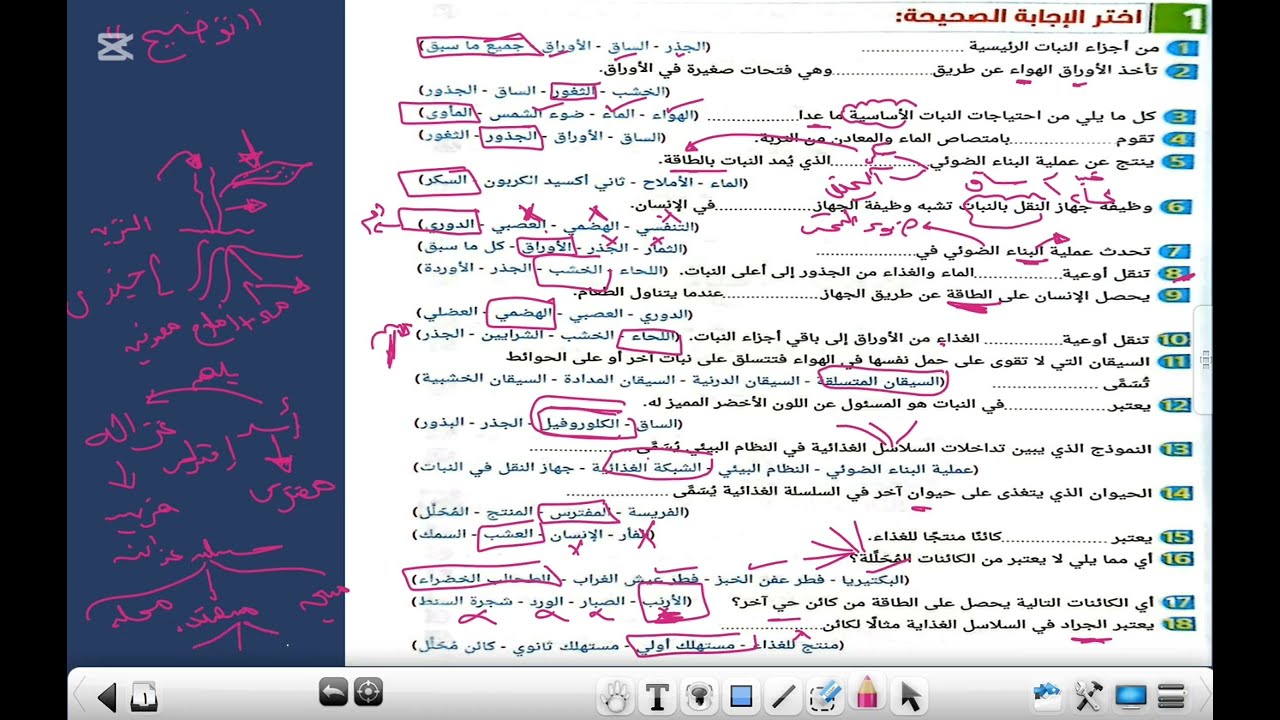 1 اختر الإجابة الصحيحة:
1 من أجزاء النبات الرئيسية ................ (الجذر - الساق - الأوراق - جميع ما سبق)
2 تأخذ الأوراق الهواء عن طريق ................ وهي فتحات صغيرة في الأوراق.
(الخشب - الثغور - الساق - الجذور)
3 كل ما يلي من احتياجات النبات الأساسية ما عدا ................ (الهواء - الماء - ضوء الشمس - المأوى)
4 تقوم ................ بامتصاص الماء والمعادن من التربة. (الساق - الأوراق - الجذور - الثغور)
5 ينتج عن عملية البناء الضوئي ................ الذي يُمد النبات بالطاقة.
(الماء - الأملاح - ثاني أكسيد الكربون - السكر)
6 وظيفة جهاز النقل بالنبات تشبه وظيفة الجهاز ................ في الإنسان.
(التنفسي - الهضمي - العصبي - الدوري)
7 تحدث عملية البناء الضوئي في ................ (الثمار - الجذر - الأوراق - كل ما سبق)
8 تنقل أوعية ................ الماء والغذاء من الجذور إلى أعلى النبات. (اللحاء - الخشب - الجذر - الأوردة)
9 يحصل الإنسان على الطاقة عن طريق الجهاز ................ عندما يتناول الطعام.
(الدوري - العصبي - الهضمي - العضلي)
10 تنقل أوعية ................ الغذاء من الأوراق إلى باقي أجزاء النبات. (اللحاء - الخشب - الشرايين - الجذر)
11 السيقان التي لا تقوى على حمل نفسها في الهواء فتتسلق على نبات آخر أو على الحوائط
تُسَمَّى ................ (السيقان المتسلقة - السيقان الدرنية - السيقان المدادة - السيقان الخشبية)
12 يعتبر ................ في النبات هو المسئول عن اللون الأخضر المميز له.
(الساق - الكلوروفيل - الجذر - البذور)
13 النموذج الذي يبين تداخلات السلاسل الغذائية في النظام البيئي يُسَمَّى ................
(عملية البناء الضوئي - النظام البيئي - الشبكة الغذائية - جهاز النقل في النبات)
14 الحيوان الذي يتغذى على حيوان آخر في السلسلة الغذائية يُسَمَّى ................
(الفريسة - المفترس - المنتج - المُحَلِّل)
15 يعتبر ................ كائنًا منتجًا للغذاء. (الفأر - الإنسان - العشب - السمك)
16 أي مما يلي لا يعتبر من الكائنات المُحَلِّلة؟
(البكتيريا - فطر عفن الخبز - فطر عيش الغراب - الطحالب الخضراء)
17 أي الكائنات التالية يحصل على الطاقة من كائن حي آخر؟ (الأرنب - الصبار - الورد - شجرة السنط)
18 يعتبر الجراد في السلاسل الغذاية مثالًا لكائن ................
(منتج للغذاء - مستهلك أولي - مستهلك ثانوي - كائن مُحَلِّل)
التربة
أسد
افتراس
غزالة
مفترس
سلسلة غذائية
١